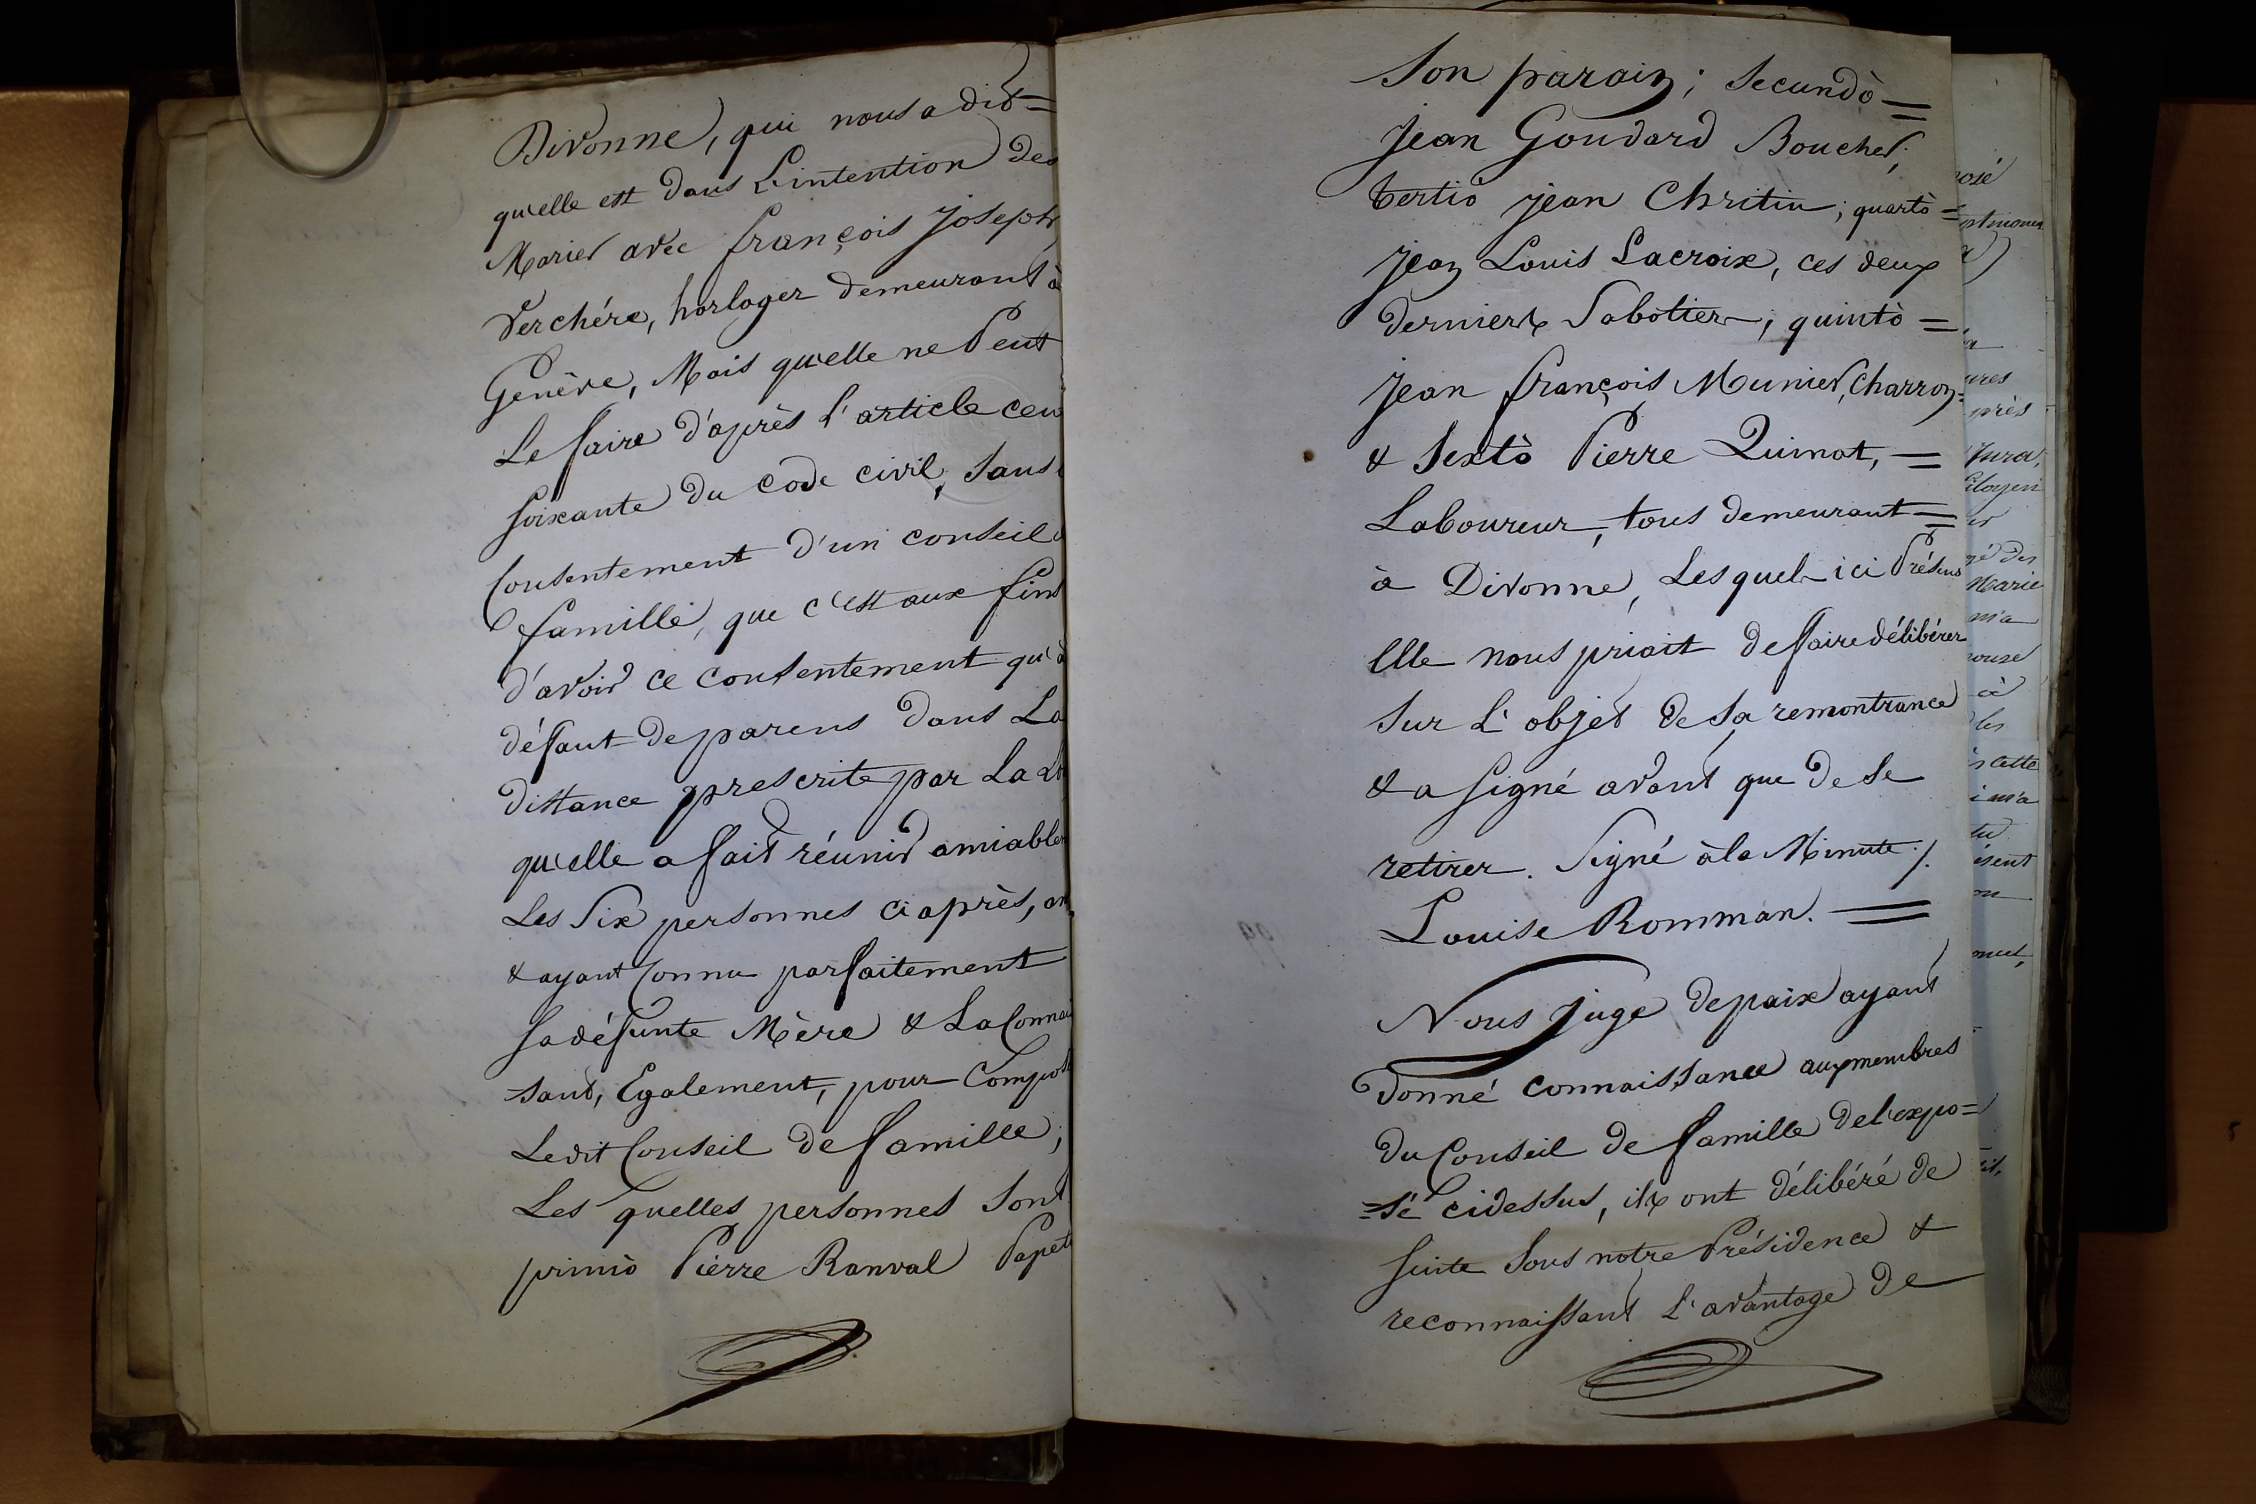 Divonne, qui nous a dit =
qu'elle est dans L'intention de
Marier avec françois Joseph
Verchére, horloger demeurant à
Genève, Mais qu'elle ne Peut
Le faire d'après l'article cen
soixante du code civil, sans
Consentement d'un conseil
famille, que c'est aux fins
d'avoir ce consentement qu'à
défaut de parens dans La
distance prescrite par La Loi
qu'elle a fait réunir amiable
Les Six personnes ci après,
& ayant Connu parfaitement
sa défunte Mère & La Connai
sant, Egalement, pour Compos
Ledit Conseil de famille;
Les quelles personnes sont
primò Pierre Ranval Papet
Son parain; Secundò =
Jean Goudard Boucher;
tertiò jean Chritin; quartò =
jean Louis Lacroix, ces deux
derniers Sabotiers; quintò =
Jean françois Munier, Charron =
& Sextò Pierre Quinot, =
Laboureur, tous demeurant =
à Divonne, Lesquels ici Présens
Elle nous priait de faire délibérer
sur L'objet de sa remontrance
& a signé avant que de se
retirer. Signé à la Minute /.
Louise Romman. =
Nous juge de paix ayant
donné connaissance aux membres
du Conseil de famille de l'expo=
=sé ci dessus, ils ont délibéré de
suite sous notre Présidence &
reconnaissant L'avantage de
osé
près
Jura,
Citoyen
Marie
m'a
cette
m'a